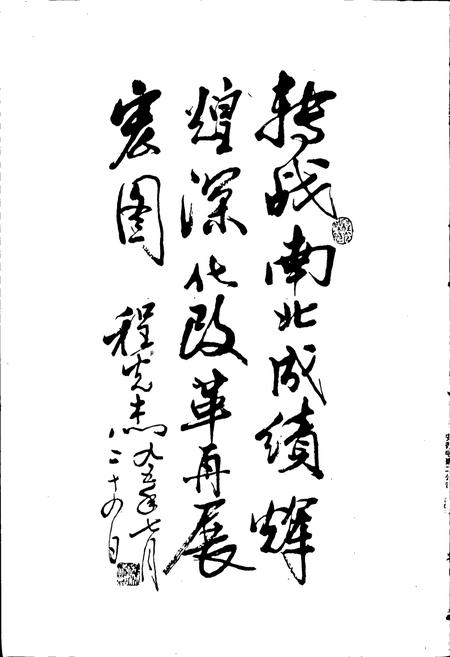 转战南北成绩辉
煌深化改革再展
宏图
程先杰九五年七月
二十四日